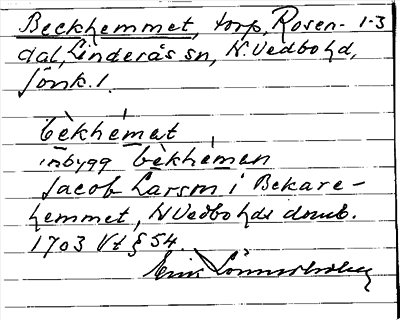 Beckhemmet, torp, Rosen- 1-3
dal, Linderås sn, N. Vedbo hd,
Jönk. l.
bèkhémet
inbygg bèkhémen
Jacob Larsm i Bekare-
hemmet, N Vedbo hds domb.
1703 Vt § 54.
Erik